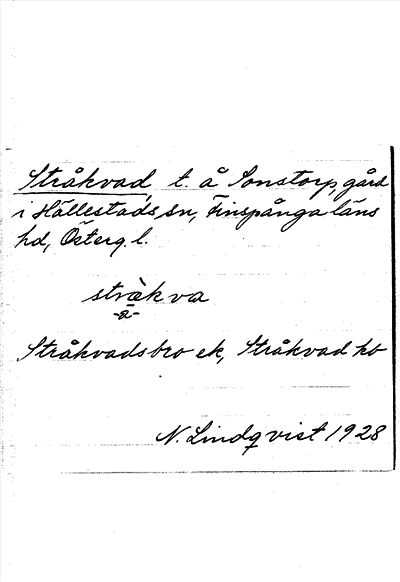 Stråkvad, t. å Sonstorp, gård
i Hällestads sn, Finspånga läns
hd, Österg. l.
stràkva
-a-
Stråkvadsbro ek, Stråkvad hb
N. Lindqvist 1928